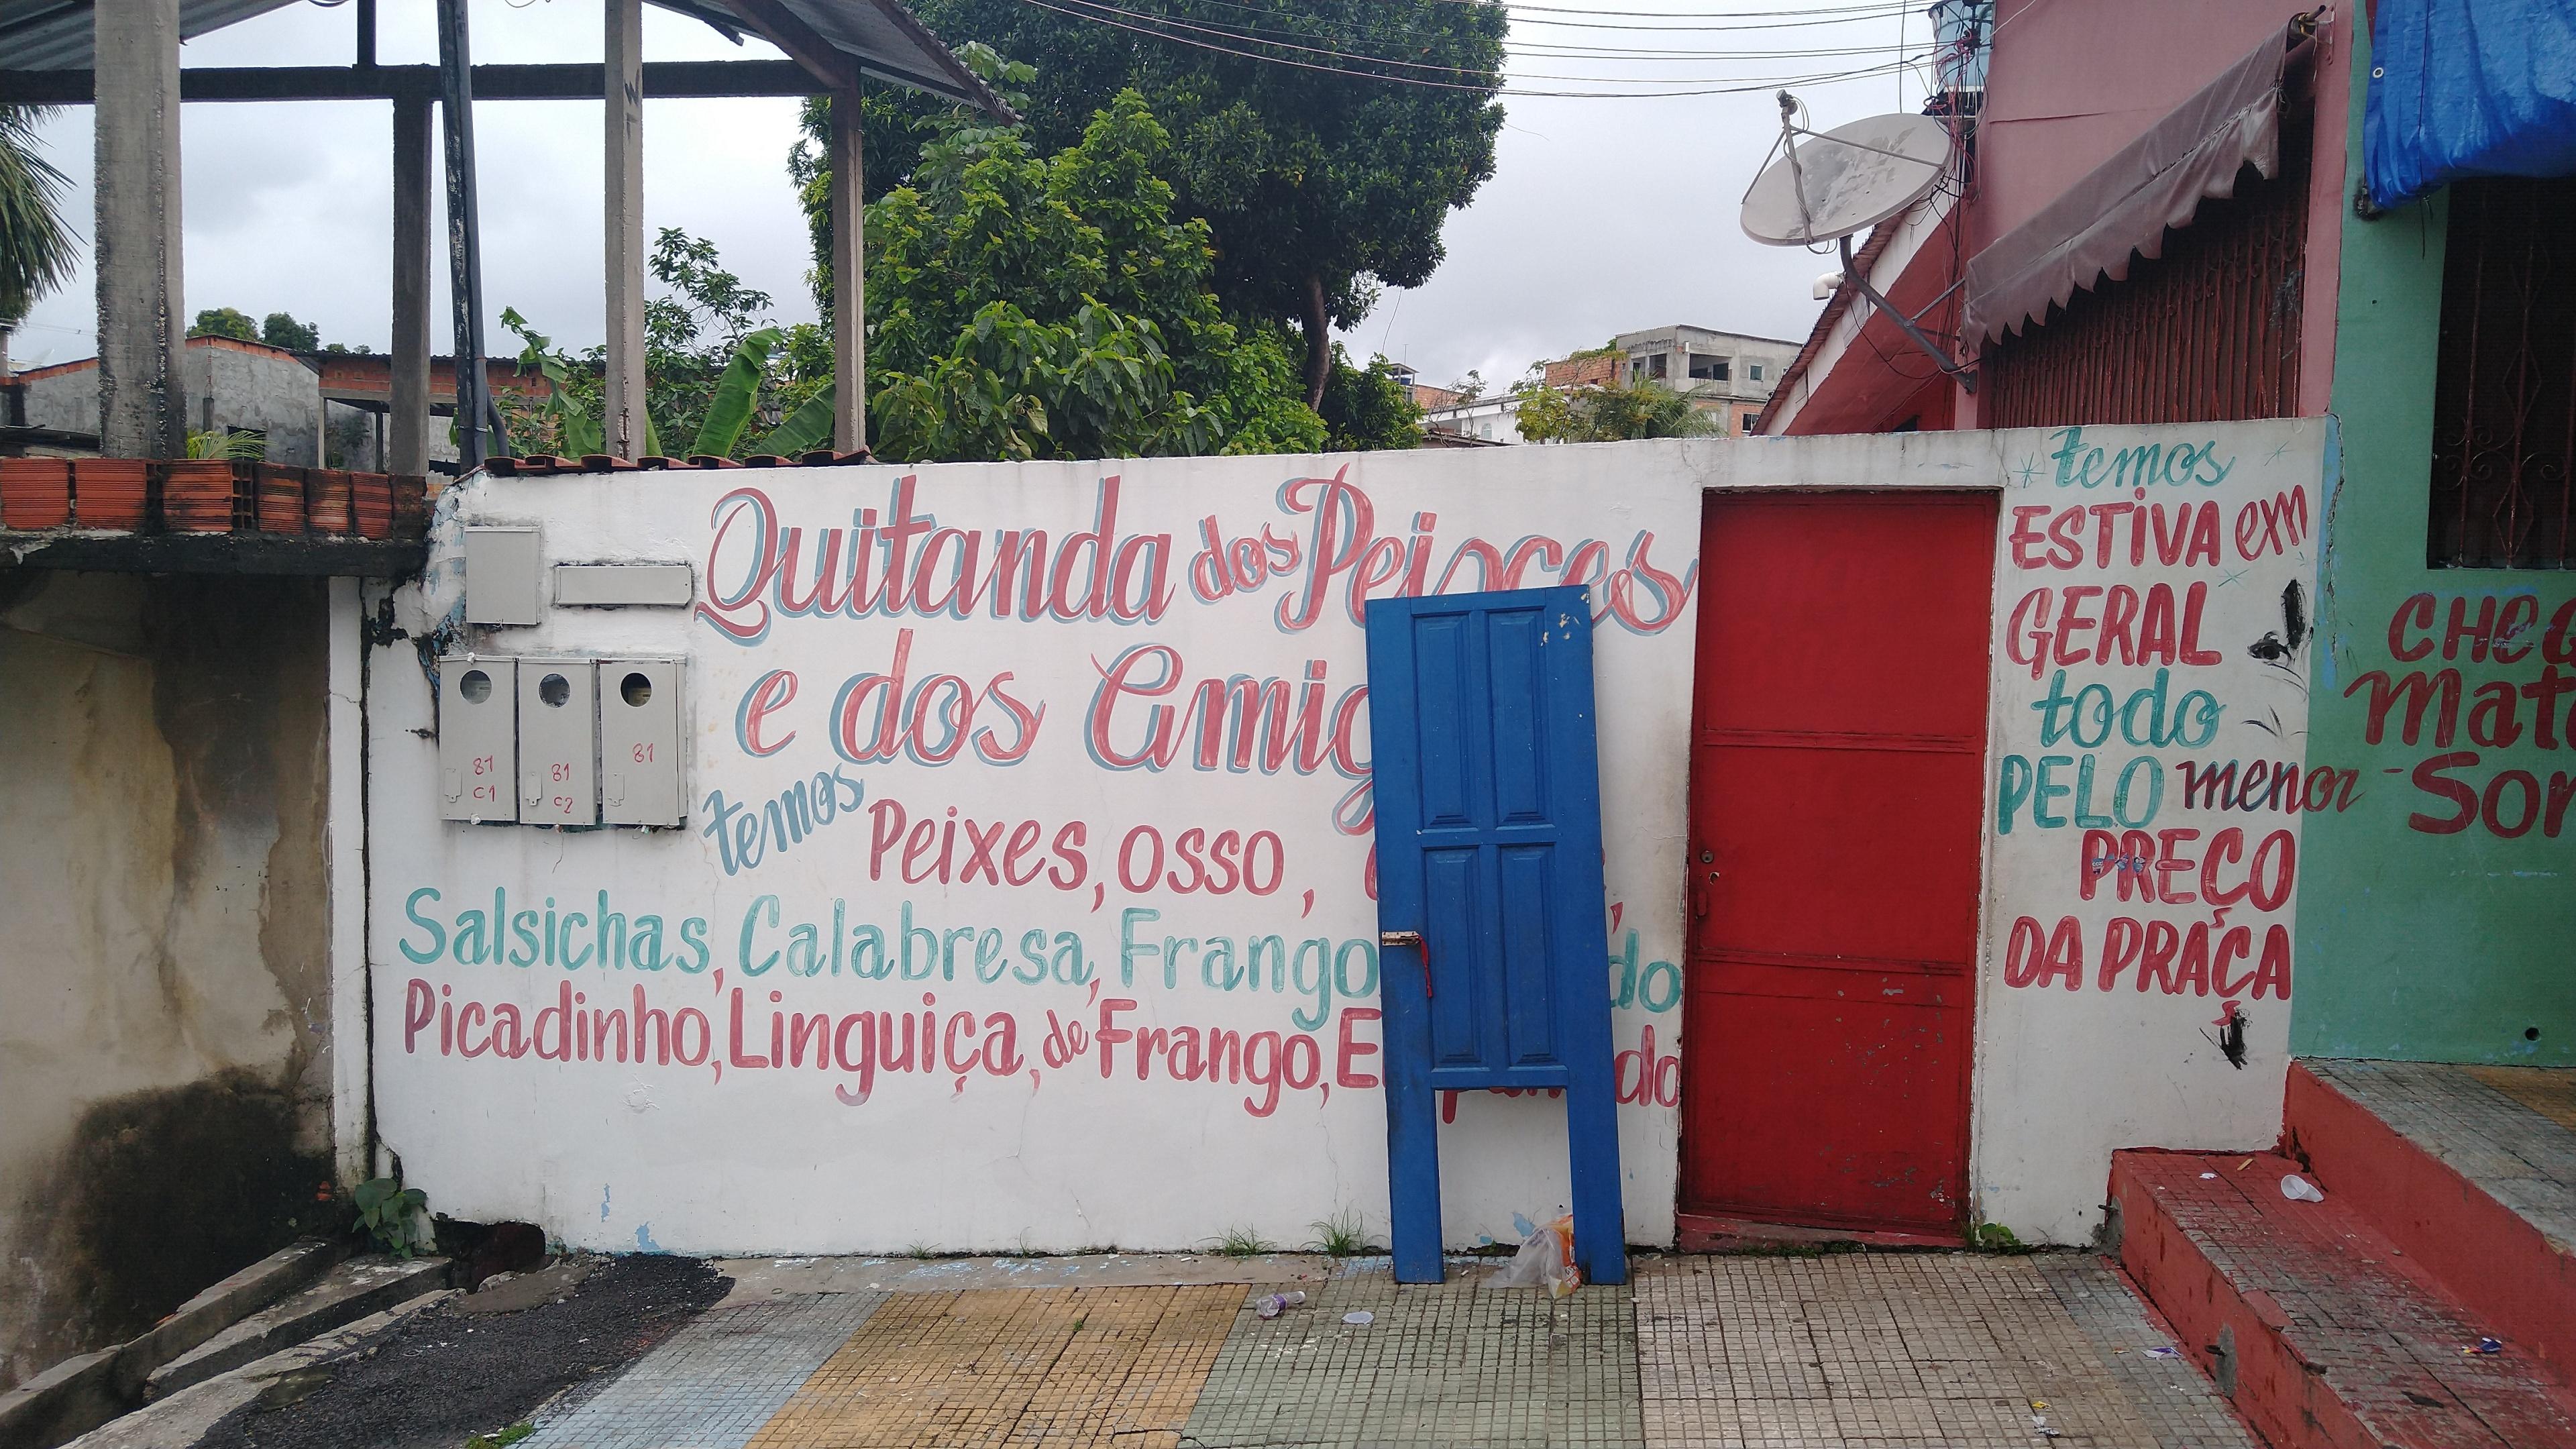 Quitanda dos Peixes
e dos Amig
temos
Peixes, osso,
Salsichas, Calabresa, Frango do
Picadinho, Linguiça, de Frango, E do
81
C1
81
C2
81
temos
ESTIVA em
GERAL
todo
PELO menor
PREÇO
DA PRAÇA
CHEG
Mat
Son